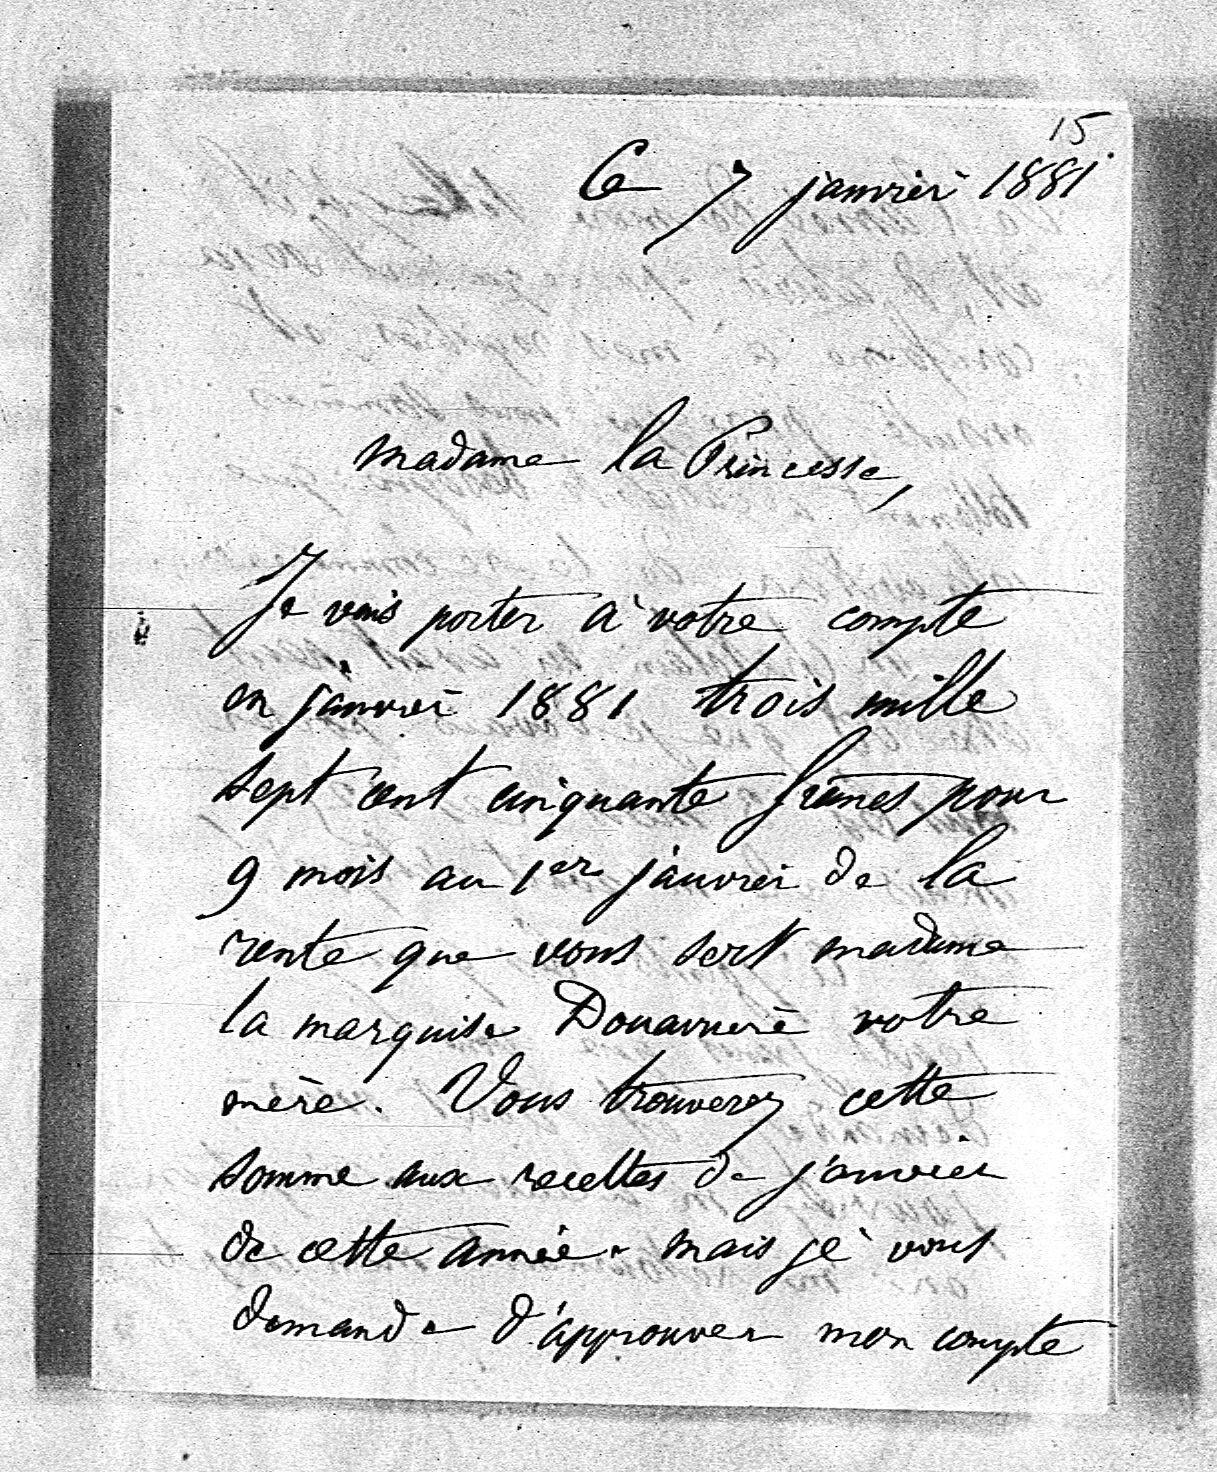 15
Ce 7 janvier 1881
Madame la Princesse,
Je vais porter à votre compte
en janvier 1881 trois mille
sept cent cinquante francs pour
9 mois au 1er janvier de la
rente que vous sert madame
la marquise Douairière votre
mère. Vous trouverez cette
somme aux recettes de janvier
de cette année. mais je vous
demande d'approuver mon compte